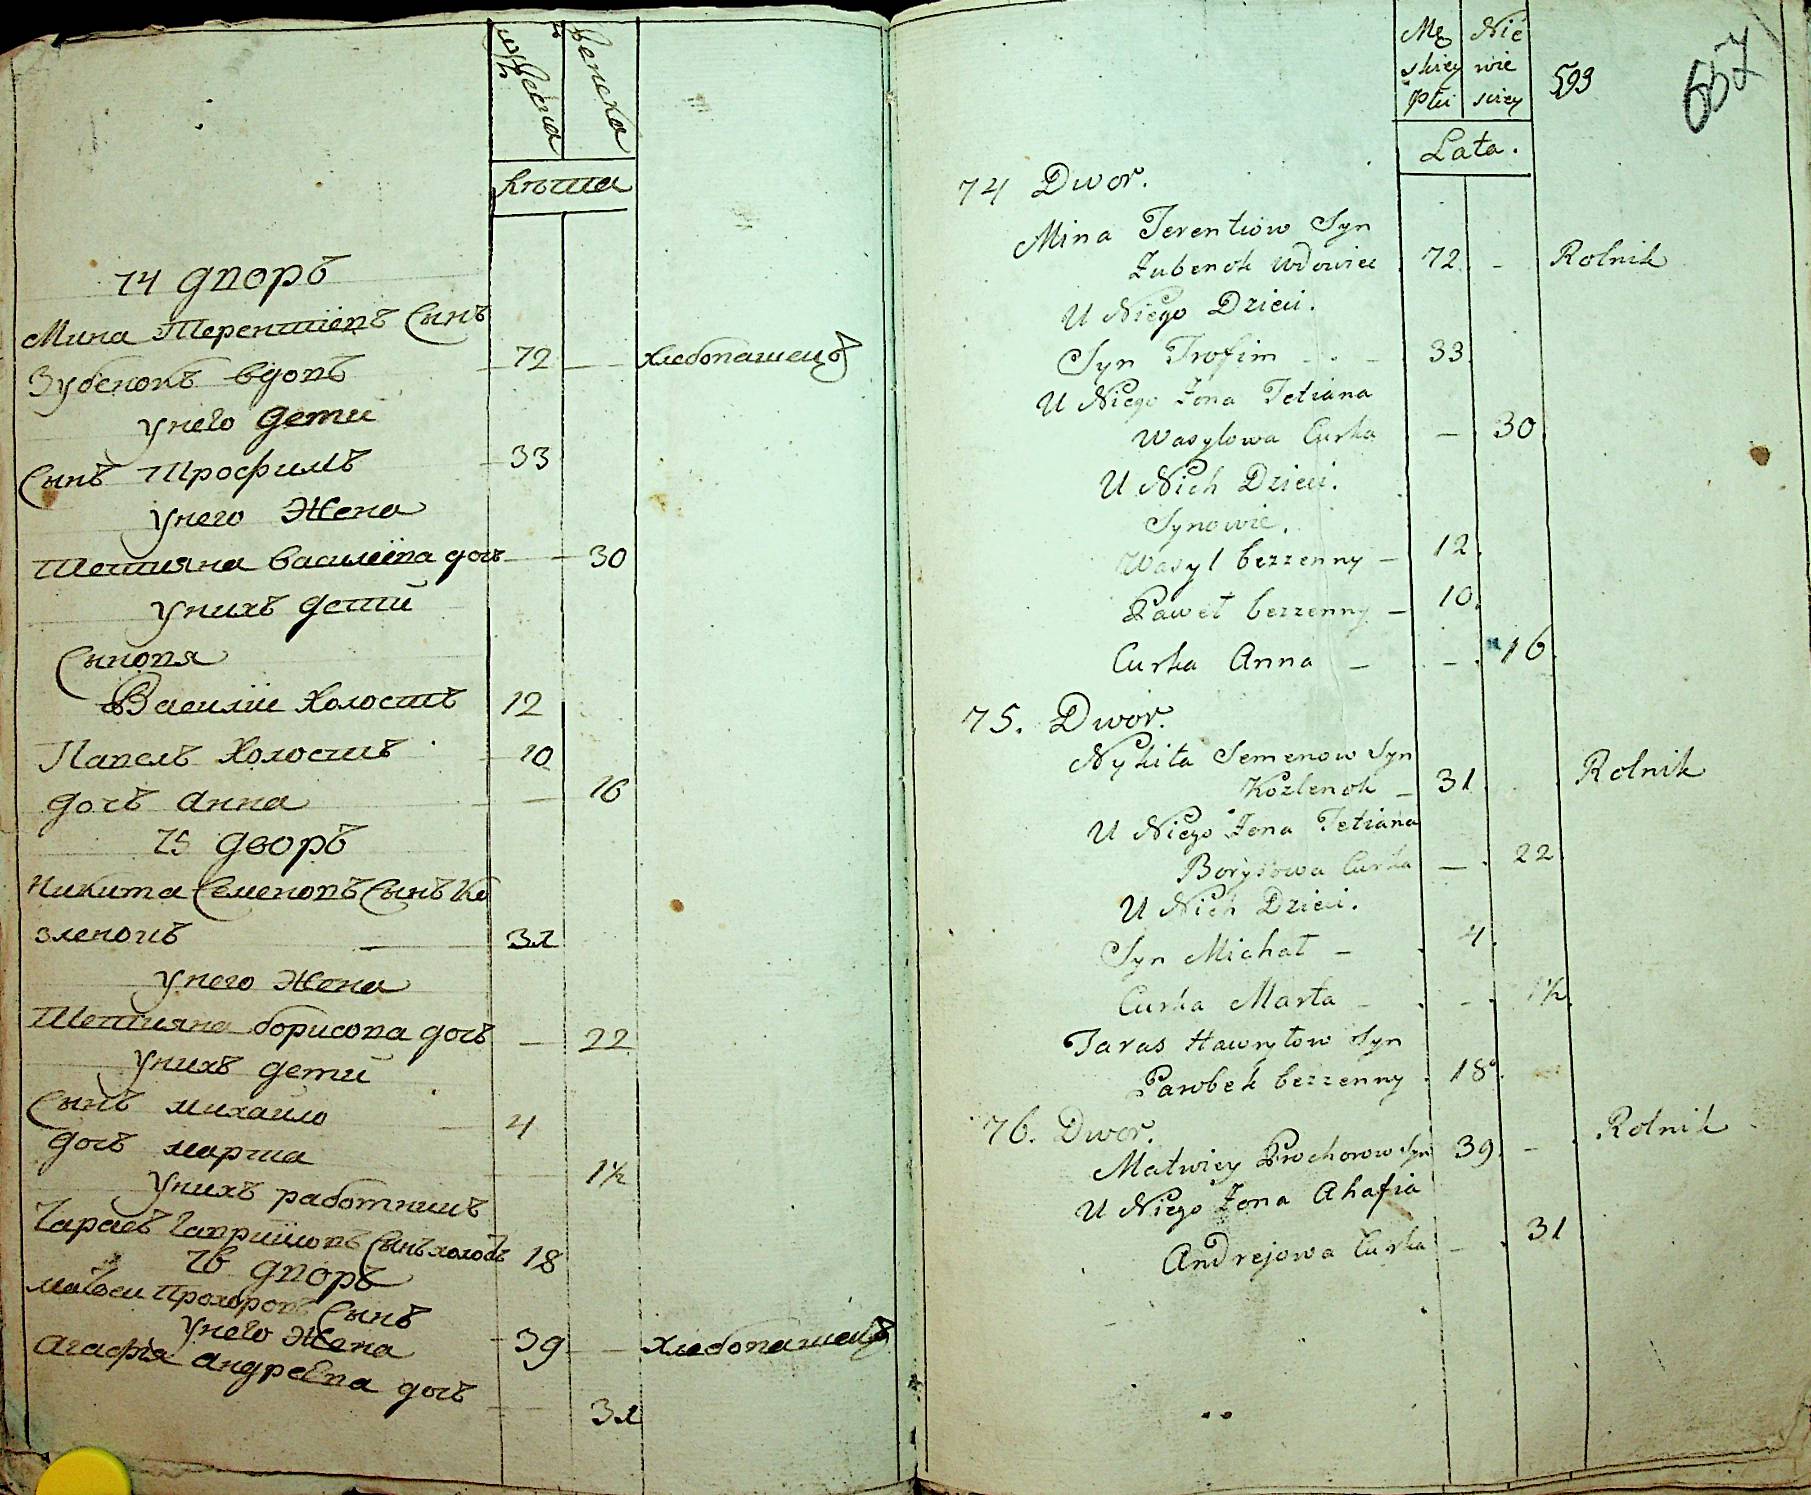 Женска
лѣта
74 дворъ
Мина Терентіевъ Сынъ
Зубенокъ вдовъ 72 — хлебопашецъ
унего дети
Сынъ Трофимъ 33
унего Жена
Тетияна василіева дочъ — 30
унихъ дети
Сыновя
Василіи холостъ 12
Павелъ холостъ 10
дочъ анна — 16
75 дворъ
Никита Семеновъ Сынъ Ко
зленокъ — 31
унего жена
Тетияна борисова дочъ — 22
унихъ дети
Сынъ михаило — 4
дочъ марта — 1½
унихъ работникъ
Тарасъ Гавриловъ Сынъ холостъ 18
76 дворъ
матвеи Прохоровъ Сынъ
унего Жена 39 — хлебопашецъ
агафія андреева дочъ
— 31
Mę Nie
skiey wie
Płci sciey 593 657
Lata.
74 Dwor.
Mina Terentiow Syn
Zubenok wdowiec 72. – Rolnik
U Niego Dzieci.
Syn Trofim – . – 33.
U Niego Zona Tetiana
Wasylowa Curka . – 30.
U Nich Dzieci.
Synowie.
Wasyl bezzenny – 12.
Paweł bezzenny – 10.
Curka Anna – . – . 16.
75. Dwor.
Nykita Semenow Syn
Kozlenok – 31. . Rolnik
U Niego Zona Tetiana
Borysowa Curka – . 22.
U Nich Dzieci.
Syn Michał – . 4.
Curka Marta – . – . 1½.
Taras Hawryłow Syn
Parobek bezzenny . 18.
76. Dwor.
Matwiey Prochorow Syn 39. – . Rolnik
U Niego Zona Ahafia
Andrejowa Curka – . 31